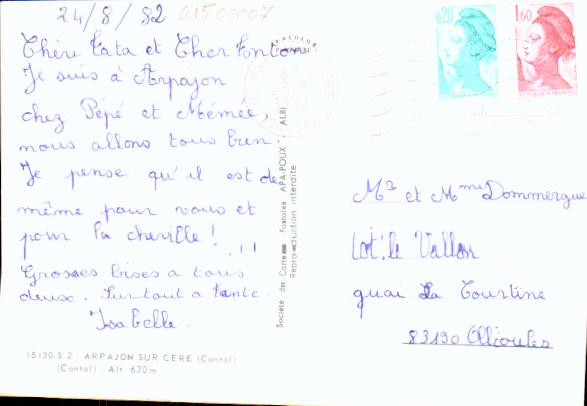 24/8/82 01500007
Chère Tata et Cher Tonton
Je suis à Arpajon
chez Pépé et Mémée,
nous allons tous bien.
Je pense qu'il est de
même pour vous et
pour la cheville ! !!
Grosses bises a tous
deux. Surtout a tante.
Isabelle.
15130-S 2 - ARPAJON SUR CERE (Cantal)
(Cantal) - Alt 630m
APACOLOR
Société des Cartes Postales APA-POUX ALBI
Reproduction interdite
0,20
1,60
Mr et Mme Dommergue
Lot. le Vallon
quai La Tourtine
83190 Ollioules